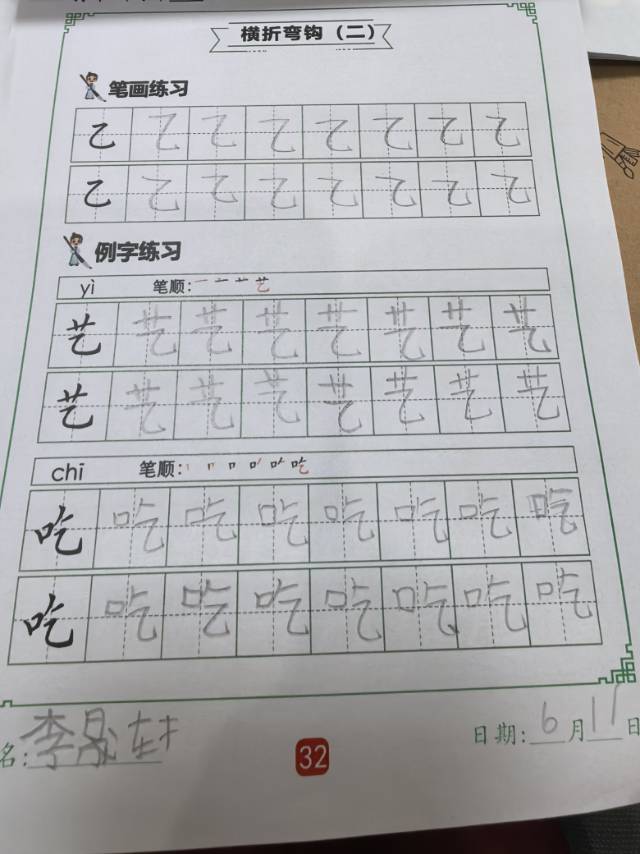 横折弯钩（二）
笔画练习
乙 乙 乙 乙 乙 乙 乙 乙
乙 乙 乙 乙 乙 乙 乙 乙
例字练习
yì 笔顺: 一 艺
艺 艺 艺 艺 艺 艺 艺 艺
艺 艺 艺 艺 艺 艺 艺 艺
chī 笔顺: 丨 口 吃
吃 吃 吃 吃 吃 吃 吃 吃
吃 吃 吃 吃 吃 吃 吃 吃
名: 李晟轩 日期: 6 月 11 日
32